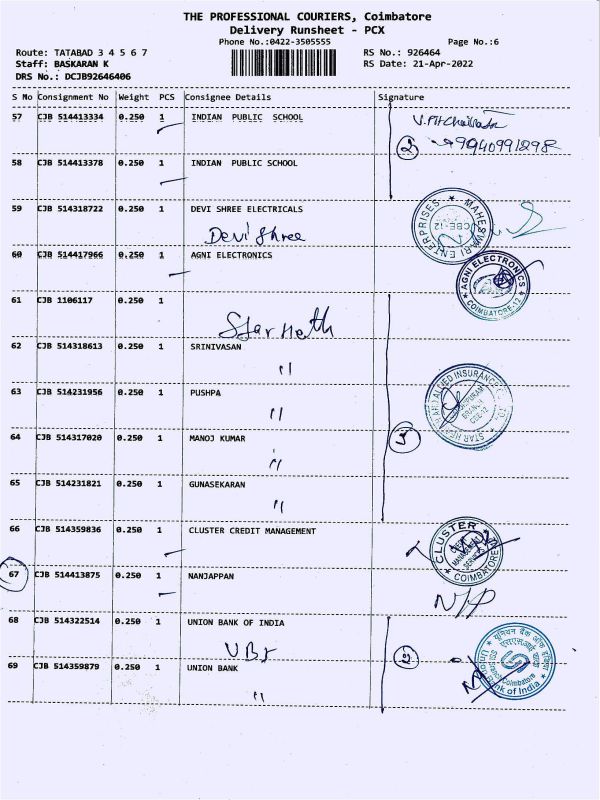 THE PROFESSIONAL COURIERS, Coimbatore
Delivery Runsheet - PCX
Phone No.:0422-3505555 Page No.:6
Route: TATABAD 3 4 5 6 7 RS No.: 926464
Staff: BASKARAN K RS Date: 21-Apr-2022
DRS No.: DCJB92646406
S No Consignment No Weight PCS Consignee Details Signature
57 CJB 514413334 0.250 1 INDIAN PUBLIC SCHOOL
2 9940991298
58 CJB 514413378 0.250 1 INDIAN PUBLIC SCHOOL
59 CJB 514318722 0.250 1 DEVI SHREE ELECTRICALS
Devi Shree
MAHESWARI ENTERPRISES
CBE-12
60 CJB 514417966 0.250 1 AGNI ELECTRONICS
AGNI ELECTRONICS
COIMBATORE-12
61 CJB 1106117 0.250 1
Star Health
62 CJB 514318613 0.250 1 SRINIVASAN
"
63 CJB 514231956 0.250 1 PUSHPA
"
64 CJB 514317020 0.250 1 MANOJ KUMAR
"
65 CJB 514231821 0.250 1 GUNASEKARAN
"
66 CJB 514359836 0.250 1 CLUSTER CREDIT MANAGEMENT
CLUSTER
COIMBATORE
67 CJB 514413875 0.250 1 NANJAPPAN
N/P
68 CJB 514322514 0.250 1 UNION BANK OF INDIA
UBI
2
यूनियन बैंक ऑफ इंडिया
Union Bank of India
69 CJB 514359879 0.250 1 UNION BANK
"